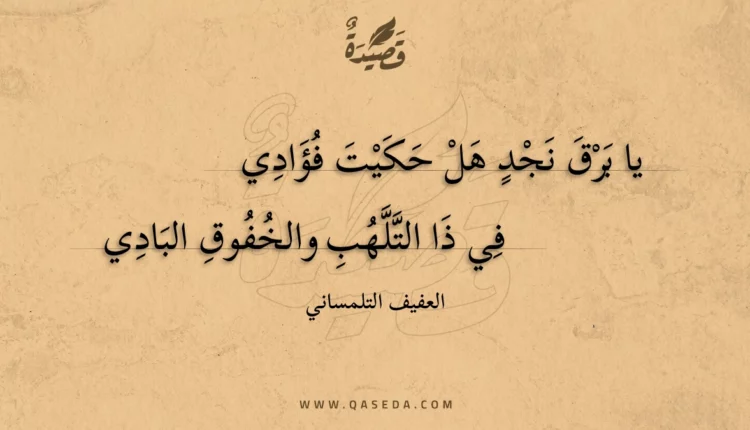 قَصِيْدَةٌ
يا بَرْقَ نَجْدٍ هَلْ حَكَيْتَ فُؤَادِي
فِي ذَا التَّلَهُبِ والخُفُوقِ البَادِي
العفيف التلمساني
WWW.QASEDA.COM